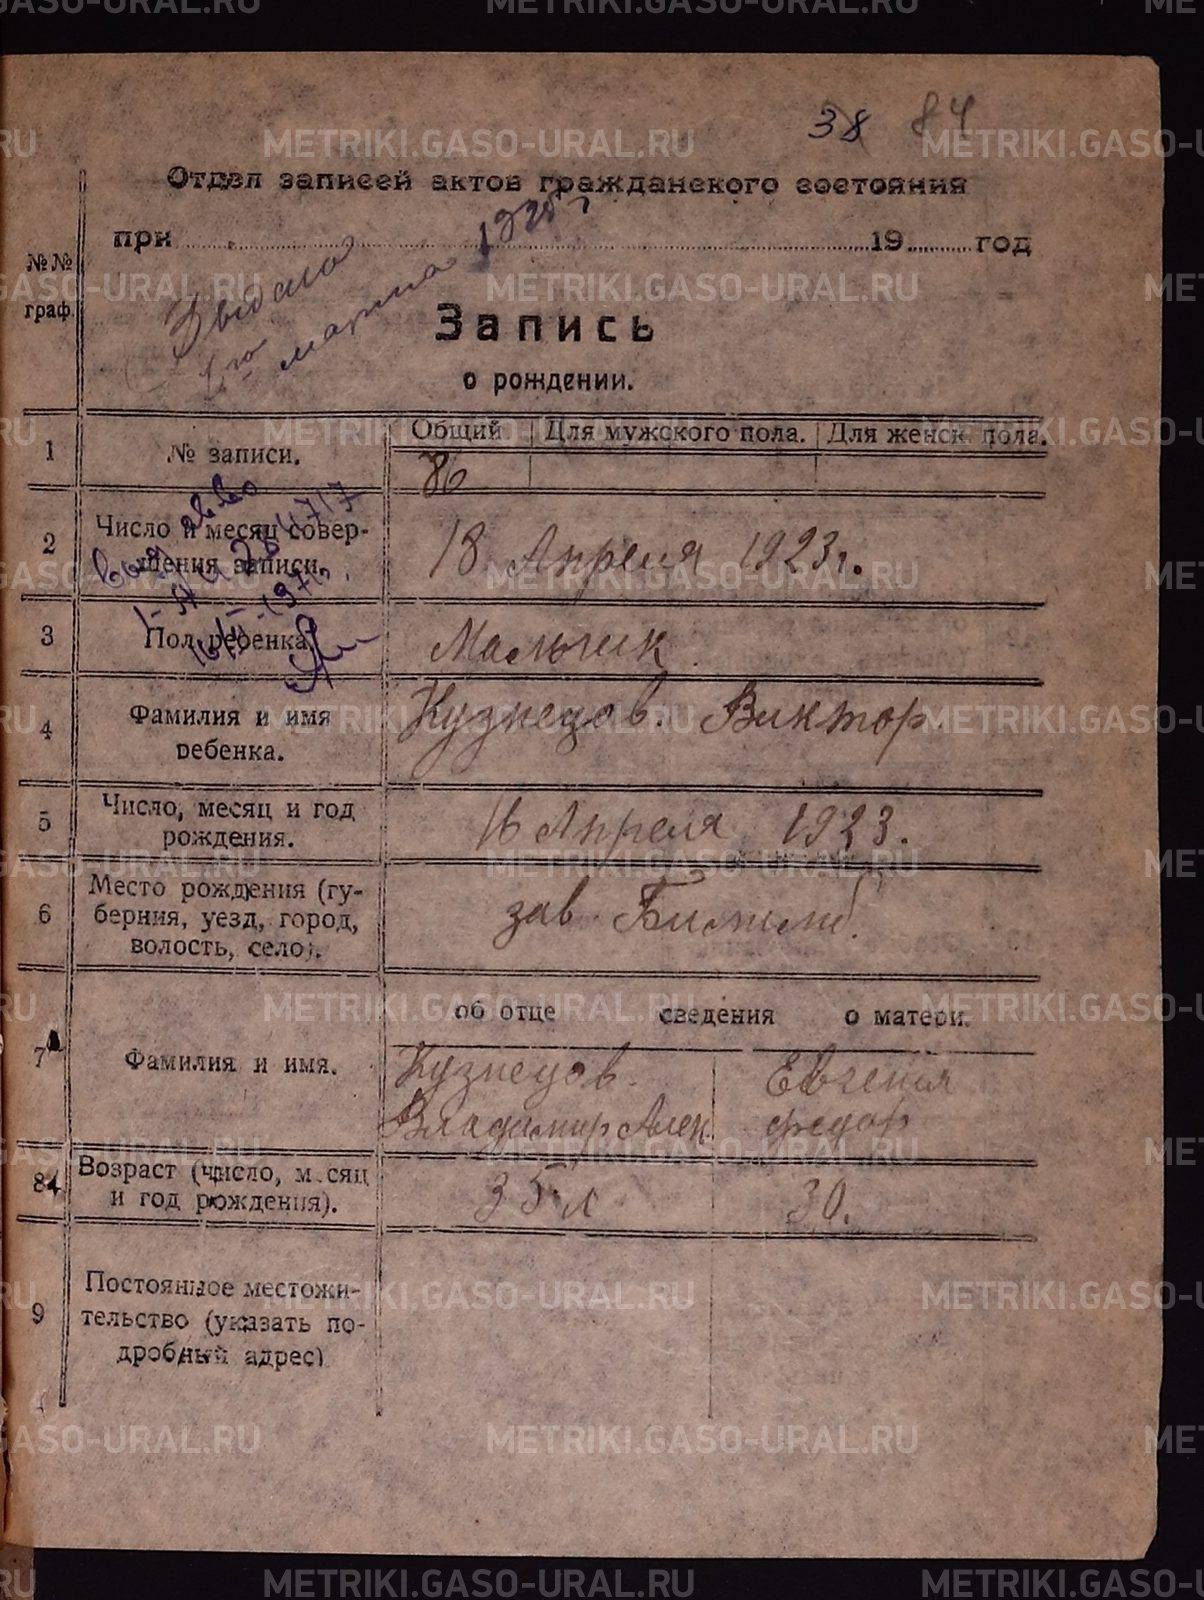 38 84
Отдел записей актов гражданского состояния
при 19 год
№№
граф.
марта
Запись
о рождении.
1 № записи. Общий Для мужского пола. Для женск. пола.
86
2 Число и месяц совер-
шения записи. 18 Апреля 1923 г.
3 Пол ребенка. Мальчик.
4 Фамилия и имя
ребенка. Кузнецов. Виктор
5 Число, месяц и год
рождения. 16 Апреля 1923.
6 Место рождения (гу-
берния, уезд, город,
волость, село). зав. Билимб.
об отце сведения о матери.
7 Фамилия и имя. Кузнецов. Евгения
Владимир Алек. федор
8 Возраст (число, месяц
и год рождения). 35 л 30.
9 Постоянное местожи-
тельство (указать по-
дробный адрес)
METRIKI.GASO-URAL.RU